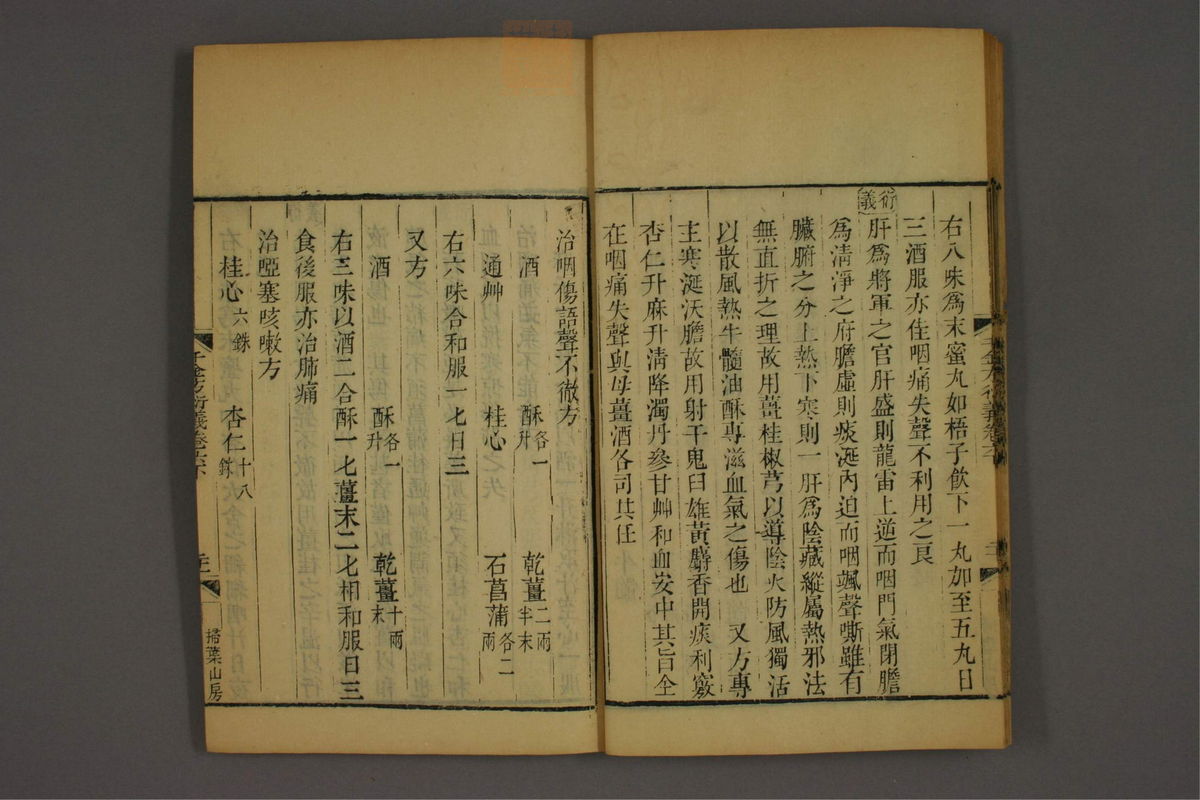 右八味爲末蜜丸如梧子飲下一丸加至五九日
三酒服亦佳咽痛失聲不利用之良
衍義
肝爲將軍之官肝盛則龍雷上逆而咽門氣閉膽
爲清淨之府膽虛則痰涎內迫而咽颯聲嘶雖有
臟腑之分上熱下寒則一肝爲陰藏縱屬熱邪法
無直折之理故用薑桂椒芎以導陰火防風獨活
以散風熱牛髓油酥專滋血氣之傷也 又方專
主寒涎沃膽故用射干鬼臼雄黃麝香開痰利竅
杏仁升麻升淸降濁丹參甘艸和血安中其旨全
在咽痛失聲與母薑酒各司其任
治咽傷語聲不徹方
酒 酥各一升 乾薑二兩半末
通艸 桂心 石菖蒲各二兩
右六味合和服一匕日三
又方
酒 酥各一升 乾薑十兩末
右三味以酒二合酥一匕薑末二匕相和服日三
食後服亦治肺痛
治啞塞咳嗽方
桂心六銖 杏仁十八銖
千金方衍義卷六下
掃葉山房